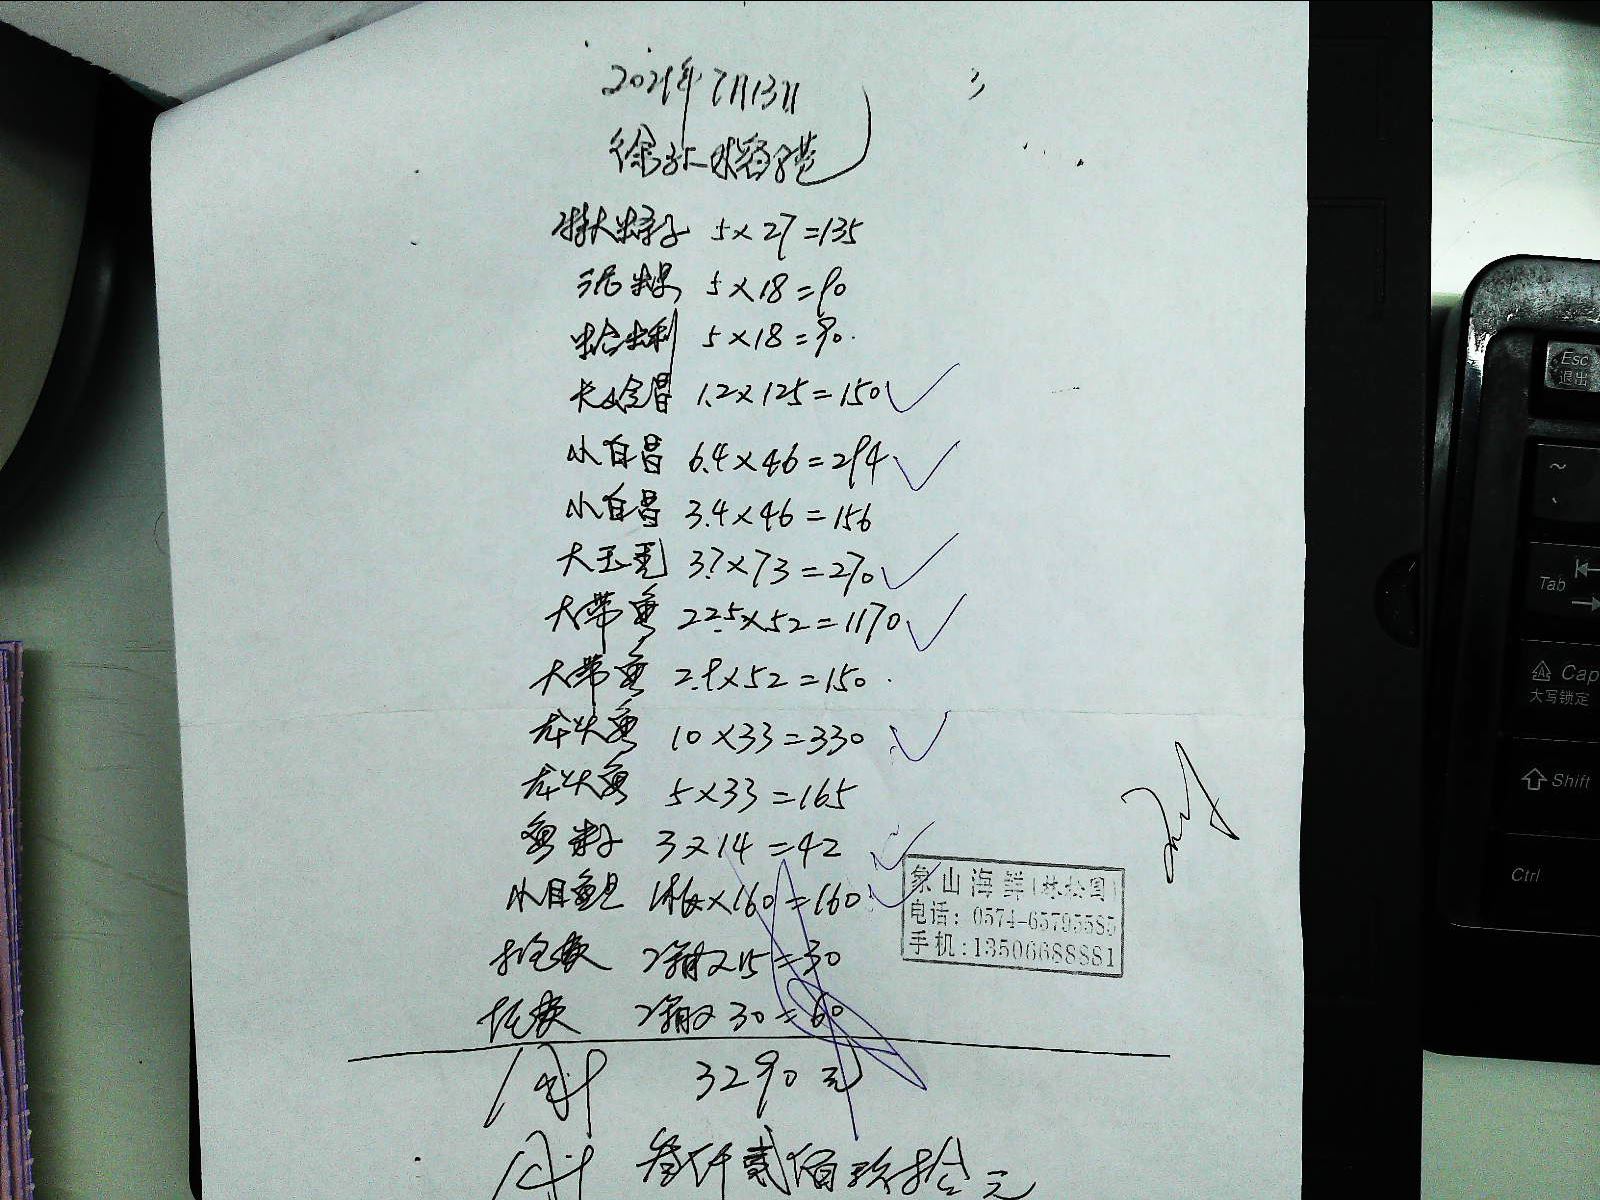 2021年7月13日
特大蛏子 5×27=135
泥螺 5×18=90
蛤蜊 5×18=90
大金昌 1.2×125=150
小白昌 6.4×46=294
小白昌 3.4×46=156
大玉秃 3.7×73=270
大带鱼 22.5×52=1170
大带鱼 2.9×52=150
龙头鱼 10×33=330
龙头鱼 5×33=165
鱼籽 3×14=42
小目鱼 ×160=160
2箱×15=30
托费 2箱×30=60
合计 3290元
合计 叁仟贰佰玖拾元
象山海鲜(林松国)
电话:0574-65795585
手机:13506688881
Esc
退出
~
Tab
Cap
大写锁定
Shift
Ctrl